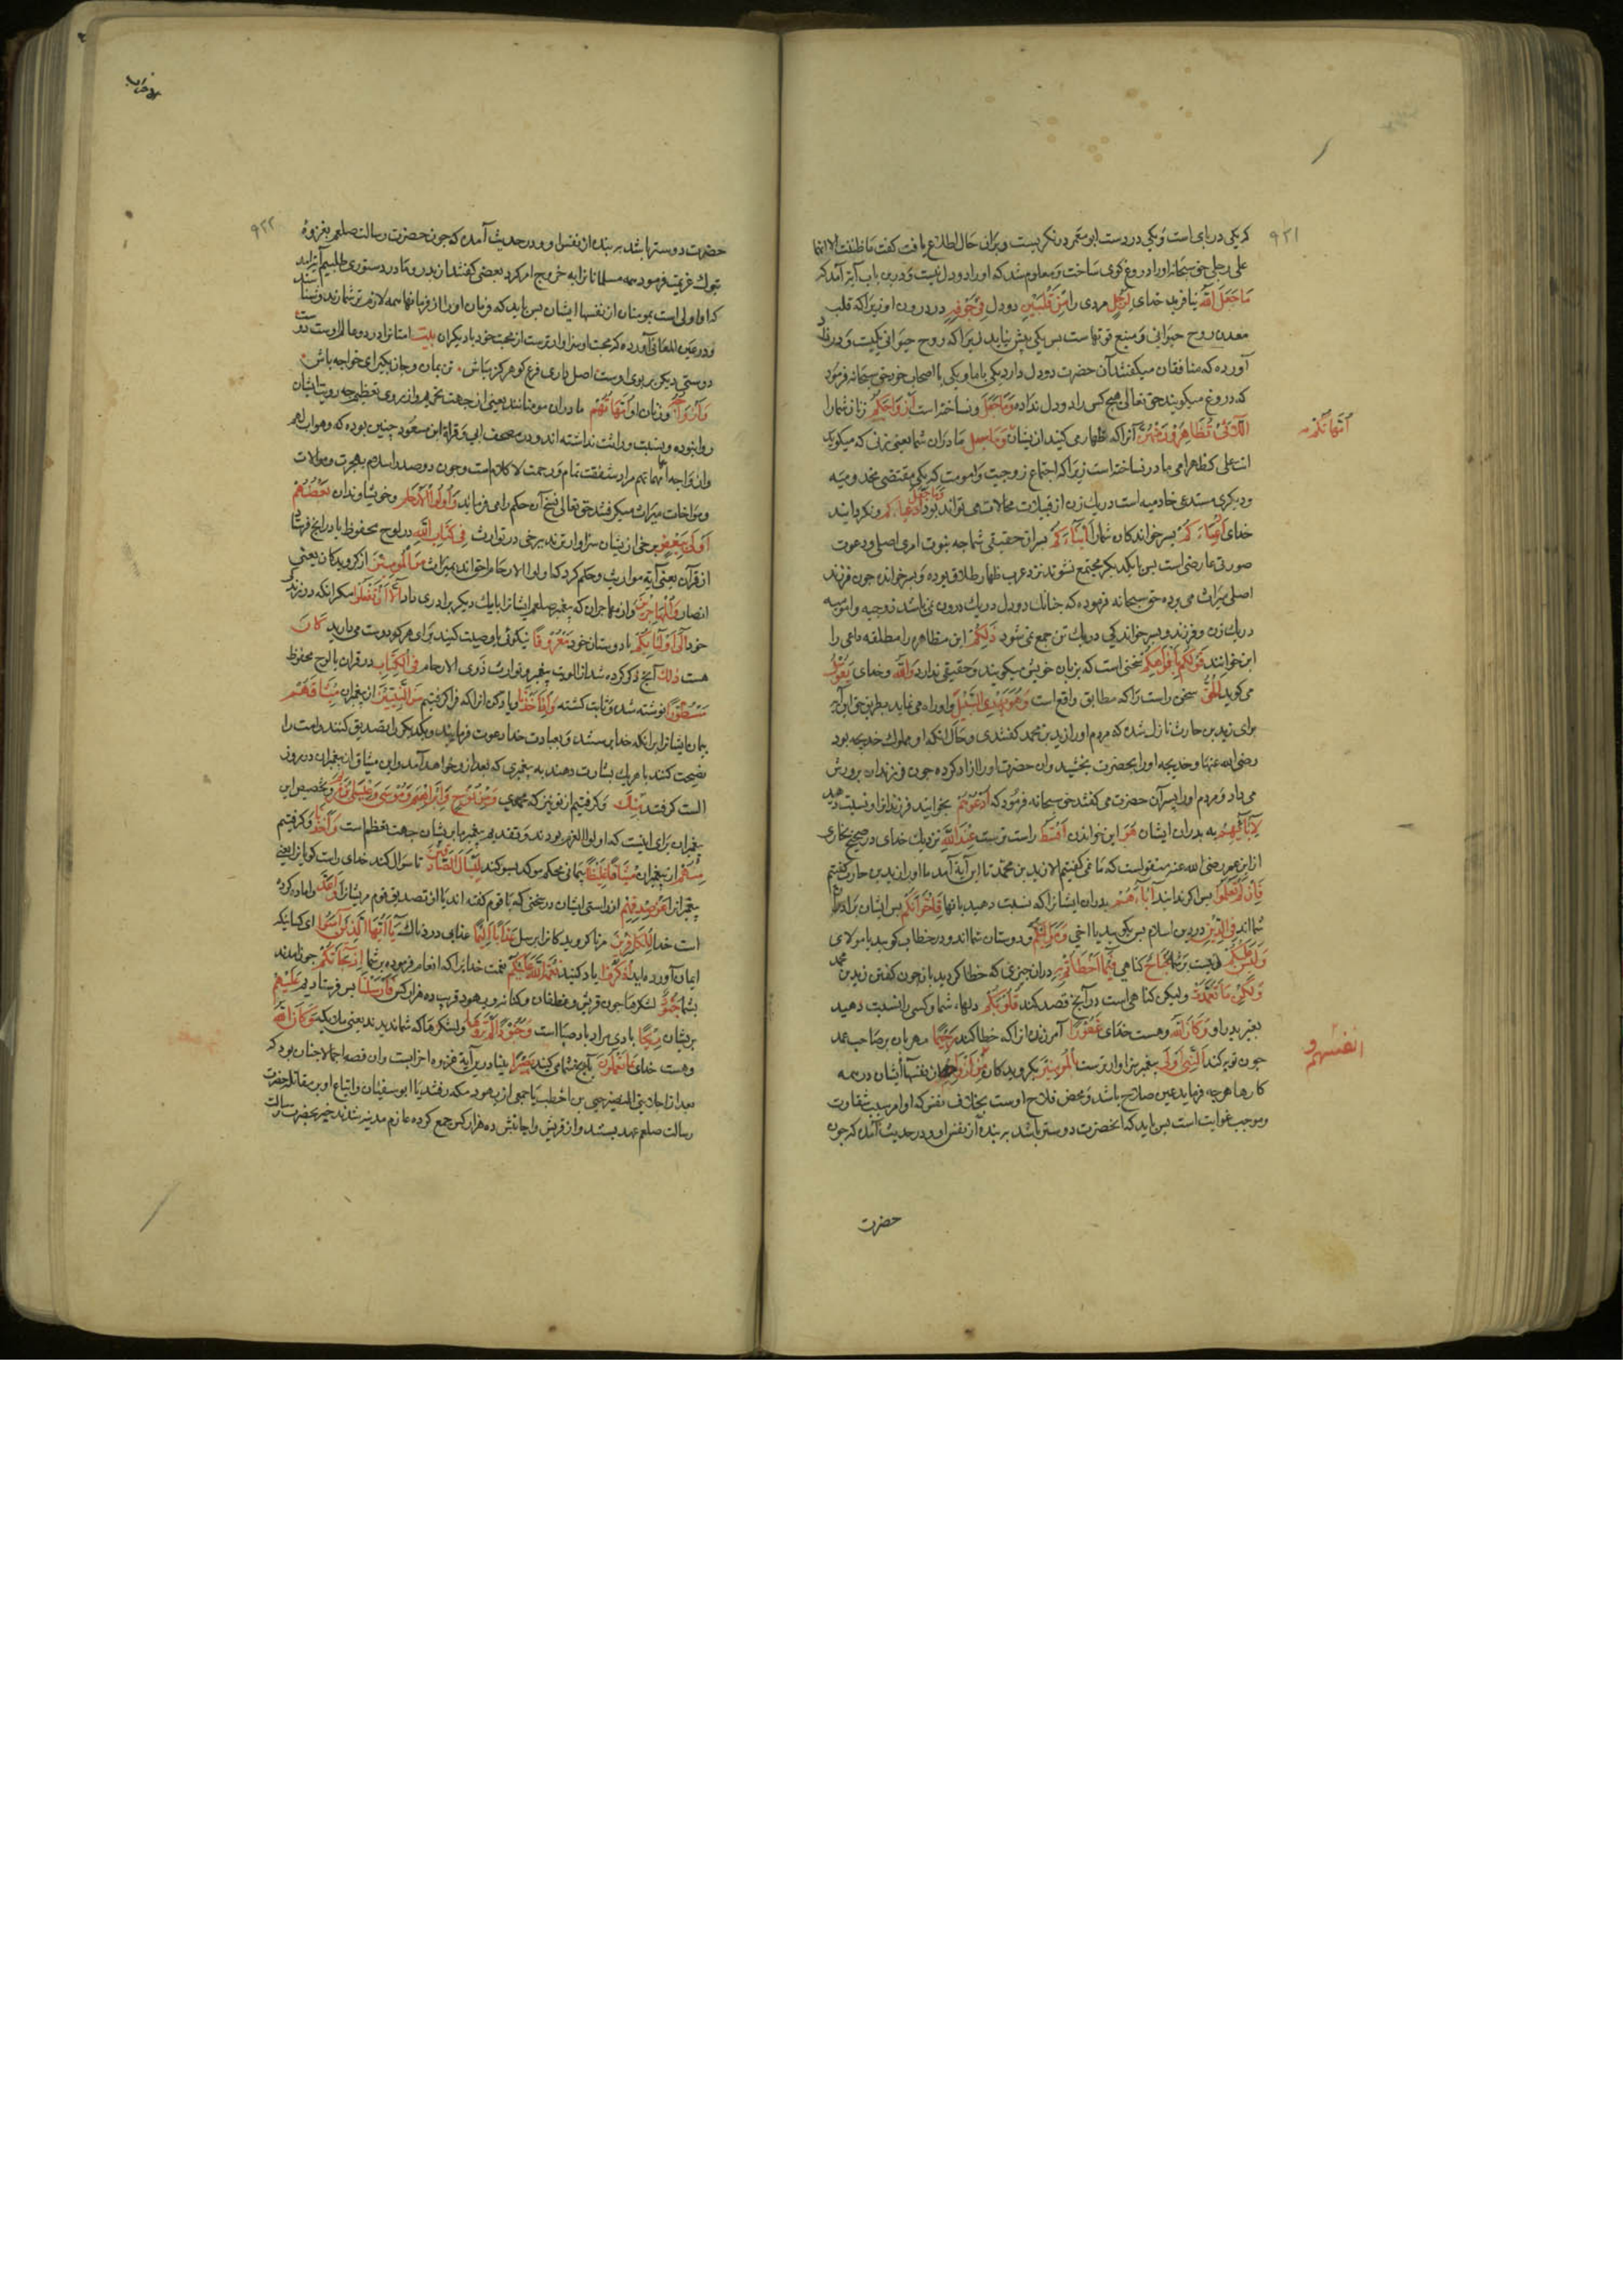 ۹۲۱
کریکی در پای است و یکی در دست ابو معمر در نکریست و بران حال اطلاع یافت کفت ما ظننت الا انما
علی رجلی حق سبحانه او را دروغ کوی ساخت و معلوم شد که او را دو دل نیست و درین باب آیة آمد که
مَا جَعَلَ اللّٰهُ نیافرید خدای لِرَجُلٍ مردی را مِنْ قَلْبَیْنِ دو دل فِی جَوْفِهِ در درون او زیراکه قلب
معدن روح حیوانی و منبع قوتهاست بس یکی بیش نباید زیراکه روح حیوانی یکیست و در
آورده که منافقان میکفتند آن حضرت دو دل دارد یکی با ما و یکی با اصحاب خود حق سبحانه فرمود
که دروغ میکویند حق تعالی هیچ کس را دو دل نداده وَمَا جَعَلَ و نساخته است اَزْوَاجَکُمُ زنان شما را
اللَّائِی تُظَاهِرُونَ مِنْهُنَّ آنرا که ظهار می کنید از یشان وما جعل مادران شما یعنی زنی که میکوید
امهاتکم
انت علی کظهر امی مادر نساخته است زیراکه اجتماع زوجیت و امومت که یکی مقتضی مخدومیه
و دیکری مستدعی خادمیه است در یك زن از قبیلات محالات می تواند بود وما جعل ادعیاءکم و نکردانید
خدای اَدْعِیَاءَکُمْ بسر خواندکان شما را اَبْنَاءَکُمْ بسران حقیقی شما چه بنوت امری اصلی و دعوت
صورتی عارضی است بس با یکدیکر مجتمع نشوند نزد عرب ظهار طلاق بوده و بسر خوانده چون فرزند
اصلی میراث می برده حق سبحانه فرموده که چنانك دو دل در یك درون نمی باشد زوجیه و امومیه
در یك زن و فرزند و بسر خواندکی در یك تن جمع نمی شود ذَلِکُمْ این مظاهره را مطلقه داعی را
ابن خوانند قَوْلُکُمْ بِاَفْوَاهِکُمْ سخنی است که بزبان خویش میکویند و حقیقتی ندارد وَاللّٰهُ و خدای یَقُولُ
می کوید الْحَقَّ سخن راست را که مطابق واقع است وَهُوَ یَهْدِی السَّبِیلَ و او راه می نماید بطریق حق این آیه
برای زید بن حارث نازل شده که مردم او را زید بن محمد کفتندی و حال آنکه او مملوك خدیجه بود
رضی الله عنها و خدیجه او را بحضرت بخشید و ان حضرت او را ازاد کرده چون فرزندان برورش
می داد و مردم او را بسر آن حضرت می کفتند حق سبحانه فرمود که اُدْعُوهُمْ بخوانید فرزندانرا و نسبت دهید
لِآبَائِهِمْ به بدران ایشان هُوَ این خواندن اَقْسَطُ راست ترست عِنْدَ اللّٰهِ نزدیك خدای در صحیح بخاری
از ابن عمر رضی الله عنه منقولست که ما نمی کفتیم الا زید بن محمد تا این آیة آمد ما او را زید بن حارث کفتیم
فَاِنْ لَمْ تَعْلَمُوا بس اکر ندانید آبَاءَهُمْ بدران ایشانرا که نسبت دهید بانها فَاِخْوَانُکُمْ بس ایشان برادران
شما اند فِی الدِّینِ در دین اسلام بس بکویید یا اخی وَمَوَالِیکُمْ و دوستان شما اند و در خطاب کویید یا مولای
وَلَیْسَ عَلَیْکُمْ و نیست بر شما جُنَاحٌ کناهی فِیمَا اَخْطَأْتُمْ بِهِ دران چیزی که خطا کردید بان چون کفتن زید بن محمد
وَلٰکِنْ مَا تَعَمَّدَتْ ولیکن کناهی است در آنچ قصد کند قُلُوبُکُمْ دلهاء شما و کسی را نسبت دهید
بغیر بدر او وَکَانَ اللّٰهُ و هست خدای غَفُورًا آمرزنده انرا که خطا کند رَحِیمًا مهربان بر صاحب عمد
چون توبه کند اَلنَّبِیُّ اَوْلٰی بیغمبر سزاوارترست بِالْمُؤْمِنِینَ بکرویدکان مِنْ اَنْفُسِهِمْ از نفسهاء ایشان در همه
انفسهم و
کارها هرچه فرماید عین صلاح باشد و محض فلاح اوست بخلاف نفس که اوامر سبب شقاوت
و موجب غوایت است بس باید که آنحضرت دوستر باشد بر بنده از نفس او و در حدیث آمده که چون
حضرت
۹۲۲
حضرت دوستر باشد بر بنده از نفس او و در حدیث آمده که چون حضرت رسالت صلعم بغزوهٔ
تبوك عزیمت فرمود همه مسلمانانرا به خروج امر کرد بعضی کفتند از بدر و مادر دستوری طلبیم آیة آمد
که او اولی است بمومنان از نفسها ایشان بس باید که فرمان او را از فرمانها همه لازم تر شمارند
و در عین المعانی آورده که محبت او سزاوارترست از محبت خود با دیکران بیت
دوستی دیکری بر بوی اوست اصل داری فرع کو هرکز مباش تن بمان و جان بکیر ای خواجه باش
وَاَزْوَاجُهُ و زنان او اُمَّهَاتُهُمْ مادران مومنانند یعنی از جهت تحریم و از روی تعظیم چه رویت ایشان
روا نبوده و نسبت وراثت نداشته اند و در مصحف ابی و قراة ابن مسعود چنین بوده که وهو اب لهم
وازواجه امهاتهم مراد شفقت تمام و رحمت لا کلام است و چون در صدر اسلام بهجرت و موالات
و مواخات میراث میکرفتند حق تعالی نسخ آن حکم را می فرماید وَاُولُوا الْاَرْحَامِ و خویشاوندان بَعْضُهُمْ
اَوْلٰی بِبَعْضٍ برخی از یشان سزاوارترند ببرخی در توارث فِی کِتَابِ اللّٰهِ در لوح محفوظ یا در آنچ فرستاد
از قرآن یعنی آیة مواریث و حکم کرد که اولوا الارحام احق اند بمیراث مِنَ الْمُؤْمِنِینَ از کرویدکان یعنی
انصار وَالْمُهَاجِرِینَ و از مهاجران که بیغمبر صلعم ایشانرا با یك دیکر برادری داد اِلَّا اَنْ تَفْعَلُوا مکر آنکه در زندکی
خود اِلٰی اَوْلِیَائِکُمْ با دوستان خود مَعْرُوفًا نیکوئی یا وصیت کنید برای هرکه دوست می دارید کَانَ
هست ذٰلِكَ آنچ ذکر کرده شد از الویت بیغمبر و توارث ذوی الارحام فِی الْکِتَابِ در قران یا لوح محفوظ
مَسْطُورًا نوشته شده و ثابت کشته وَاِذْ اَخَذْنَا و یاد کن انرا که فرا کرفتیم مِنَ النَّبِیِّینَ از بیغمبران مِیثَاقَهُمْ
بیمان ایشانرا بر انکه خدا برستند و بعبادت خدا دعوت فرمایند و یکدیکر را تصدیق کنند و امت را
نصیحت کنند یا هر یك بشارت دهند به بیغمبری که بعد از و خواهد آمد و این میثاق از بیغمبران در روز
الست کرفتند وَمِنْكَ و کرفتیم از تو نیز که محمدی وَمِنْ نُوحٍ وَاِبْرَاهِیمَ وَمُوسٰی وَعِیسَی ابْنِ مَرْیَمَ و تخصیص این
بیغمبران برای اینست که اولوا العزم بودند و تقدیم بیغمبر ما بر یشان جهت تعظیم است وَاَخَذْنَا و کرفتیم
مِنْهُمْ از بیغمبران مِیثَاقًا غَلِیظًا بیمانی محکم موکد بسوکند لِیَسْأَلَ الصَّادِقِینَ تا سوال کند خدای راست کویانرا یعنی
بیغمبرانرا عَنْ صِدْقِهِمْ از راستی ایشان در سخنی که با قوم کفته اند یا از تصدیق قوم مر یشانرا وَاَعَدَّ و اماده کرده
است خدا لِلْکَافِرِینَ مر ناکرویدکانرا برسل عَذَابًا اَلِیمًا عذابی دردناك یَا اَیُّهَا الَّذِینَ آمَنُوا ای کسانیکه
ایمان آورده اید اُذْکُرُوا یاد کنید نِعْمَةَ اللّٰهِ عَلَیْکُمْ نعمت خدایرا که انعام فرموده بر شما اِذْ جَاءَتْکُمْ چون آمدند
بشما جُنُودٌ لشکرها چون قریش و غطفان و کنانه و یهود قریب ده هزار کس فَاَرْسَلْنَا بس فرستادیم عَلَیْهِمْ
بریشان رِیحًا بادی مراد باد صبا است وَجُنُودًا لَمْ تَرَوْهَا و لشکرها که شما ندیدند یعنی ملائکه وَکَانَ اللّٰهُ
و هست خدای بِمَا تَعْمَلُونَ بآنچ شما می کنید بَصِیرًا بینا درین آیة غزوه احزابست و ان قصه اجمالا چنان بود که
بعد از اجلاء بنی النضیر حیی بن اخطب با جمعی از یهود بمکه رفتند با ابو سفیان و اتباع او بر مقاتله حضرت
رسالت صلعم عهد بستند و از قریش و احابیش ده هزار کس جمع کرده عازم مدینه شدند خبر بحضرت رسالت